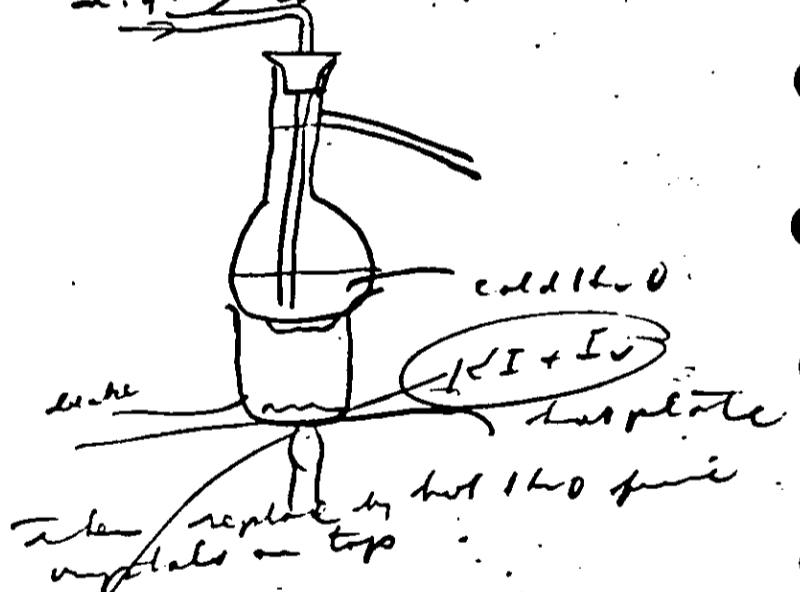 cold H2O
KI + I2
beaker
hot plate
Then replace by hot H2O
crystals on top